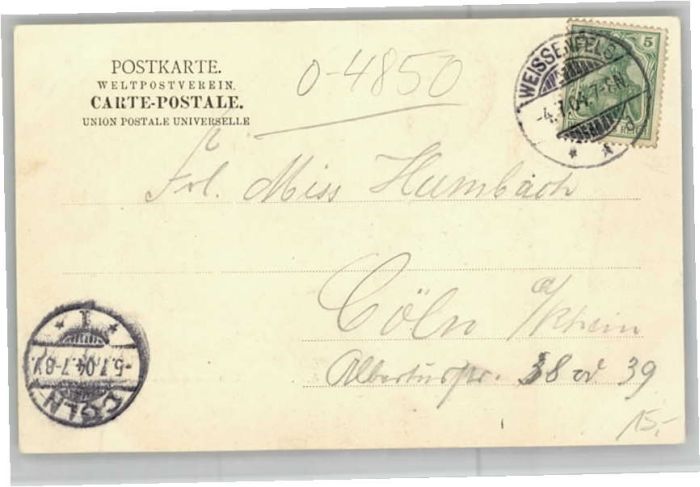 POSTKARTE.
WELTPOSTVEREIN.
CARTE-POSTALE.
UNION POSTALE UNIVERSELLE
0-4850
WEISSENFELS
-4.7.04.7-8N.
5
5
Frl. Miss Humbach
Cöln a/Rhein
Albertusstr. 38 od 39
15,-
I
-5.7.04.7-8V.
CÖLN